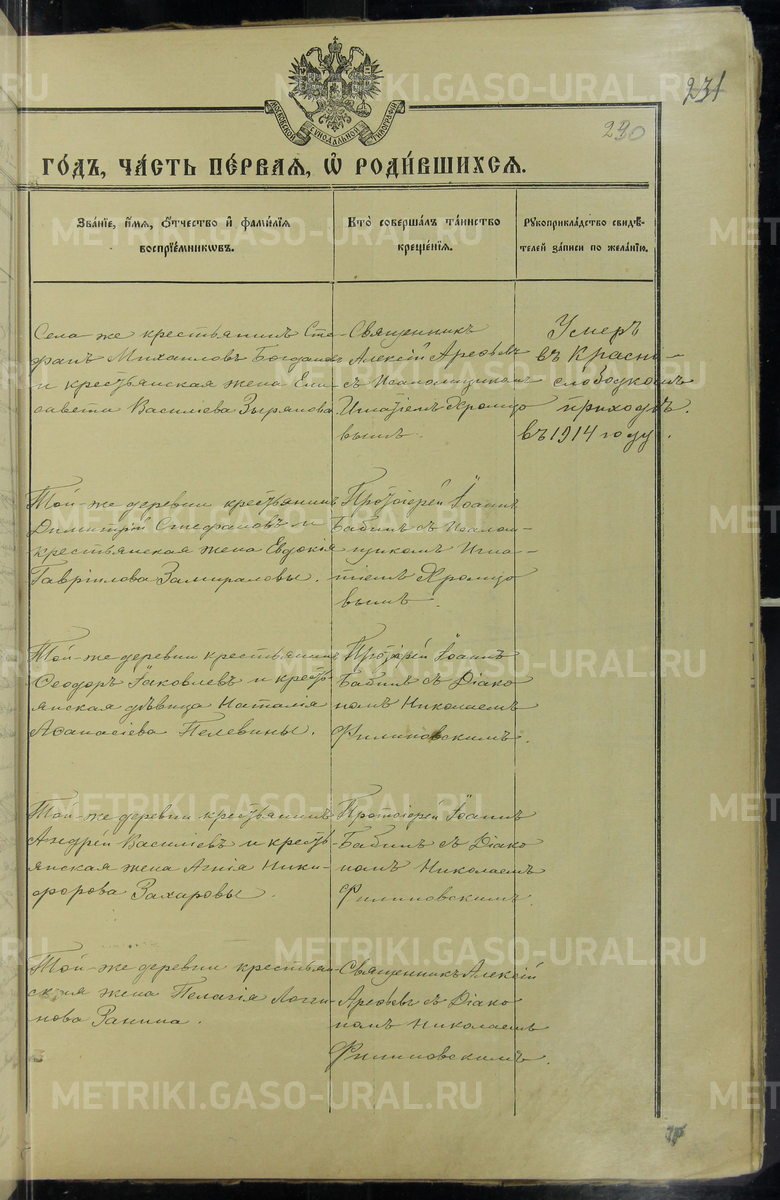 231
230
МОСКОВСКОЙ СѴНОДАЛЬНОЙ ТИПОГРАФІИ
ГО́ДЪ, ЧА́СТЬ ПЕ́РВАѦ, Ѡ РОДИ́ВШИХСѦ.
Зва́нїе, и҆́мѧ, ѻ҆́тчество и҆ фами́лїѧ
воспрїе́мникѡвъ.
Кто̀ соверша́лъ та́инство
креще́нїѧ.
Рꙋкоприкла́дство свидѣ́-
телей за́писи по жела́нїю.
Села же крестьянинъ Сте-
фанъ Михаиловъ Богдановъ
и крестьянская жена Ели-
савета Василіева Зырянова
Священникъ
Алексій Арефьевъ
съ Псаломщикомъ
Игнатіемъ Хромцо
вымъ.
Умеръ
въ Красно-
слободскомъ
приходѣ.
въ 1914 году.
Той-же деревни крестьянинъ
Димитрій Стефановъ и
крестьянская жена Евдокія
Гавріилова Замираловы.
Протоіерей Іоаннъ
Бабинъ съ Псалом-
щикомъ Игна-
тіемъ Хромцо
вымъ.
Той-же деревни крестьянинъ
Ѳеодоръ Іаковлевъ и кресть-
янская дѣвица Наталія
Аѳанасіева Пелевины.
Протоіерей Іоаннъ
Бабинъ съ Діако
номъ Николаемъ
Филиповскимъ.
Той-же деревни крестьянинъ
Андрей Василіевъ и кресть-
янская жена Агнія Ники-
форова Захаровы.
Протоіерей Іоаннъ
Бабинъ съ Діако
номъ Николаемъ
Филиповскимъ.
Той-же деревни крестьян
ская жена Пелагія Логги-
нова Занина.
Священникъ Алексій
Арефьевъ съ Діако
номъ Николаемъ
Филиповскимъ.
METRIKI.GASO-URAL.RU